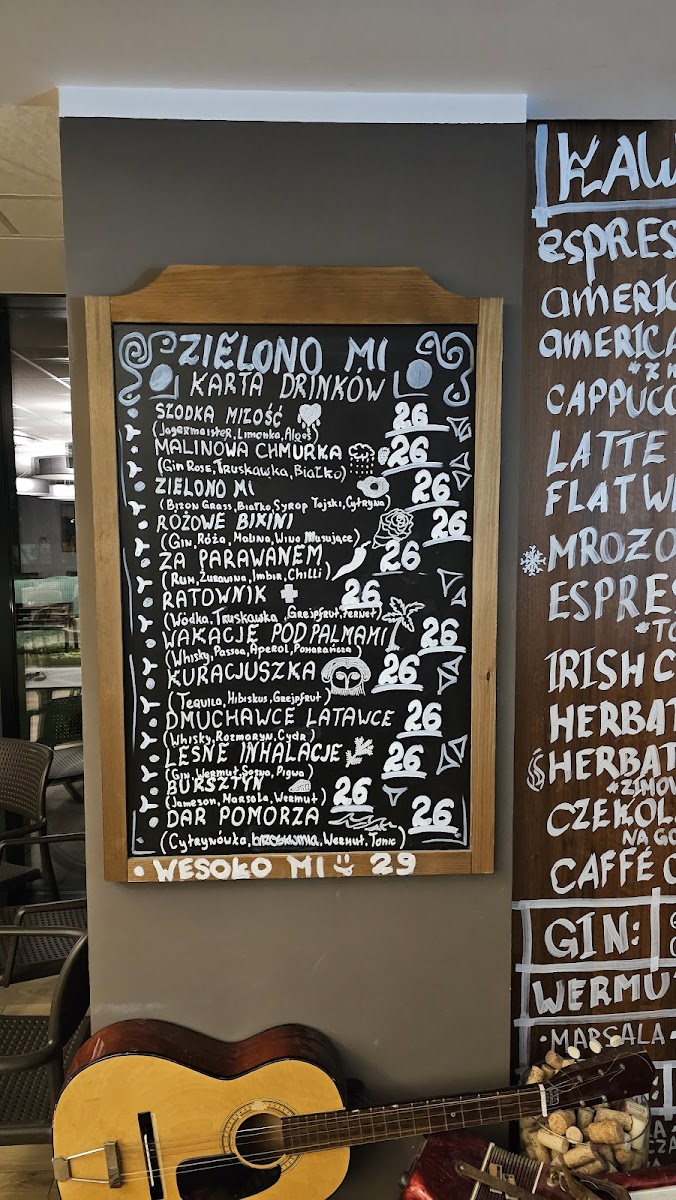 ZIELONO MI
KARTA DRINKÓW
SŁODKA MIŁOŚĆ 26
(Jagermeister, Limonka, Aloes)
MALINOWA CHMURKA 26
(Gin Rose, Truskawka, Białko)
ZIELONO MI 26
(Bizon Grass, Białko, Syrop Tajski, Cytryna)
RÓŻOWE BIKINI 26
(Gin, Róża, Malina, Wino Musujące)
ZA PARAWANEM 26
(Rum, Żurawina, Imbir, Chilli)
RATOWNIK 26
(Wódka, Truskawka, Grejpfrut, Fernet)
WAKACJE POD PALMAMI 26
(Whisky, Passoa, Aperol, Pomarańcza)
KURACJUSZKA 26
(Tequila, Hibiskus, Grejpfrut)
DMUCHAWCE LATAWCE 26
(Whisky, Rozmaryn, Cydr)
LEŚNE INHALACJE 26
(Gin, Wermut, Sosna, Pigwa)
BURSZTYN 26
(Jameson, Marsala, Wermut)
DAR POMORZA 26
(Cytrynówka, brzoskwinia, Wermut, Tonic)
• WESOŁO MI 29
KAW
espRES
AMERIC
AMERICA
CAPPUCC
LATTE
FLAT W
MROŻO
ESPRES
*TO
IRISH C
HERBAT
HERBAT
*ZIMOW
CZEKOL
NA GO
CAFFÉ C
GIN:
WERMUT
•MARSALA•